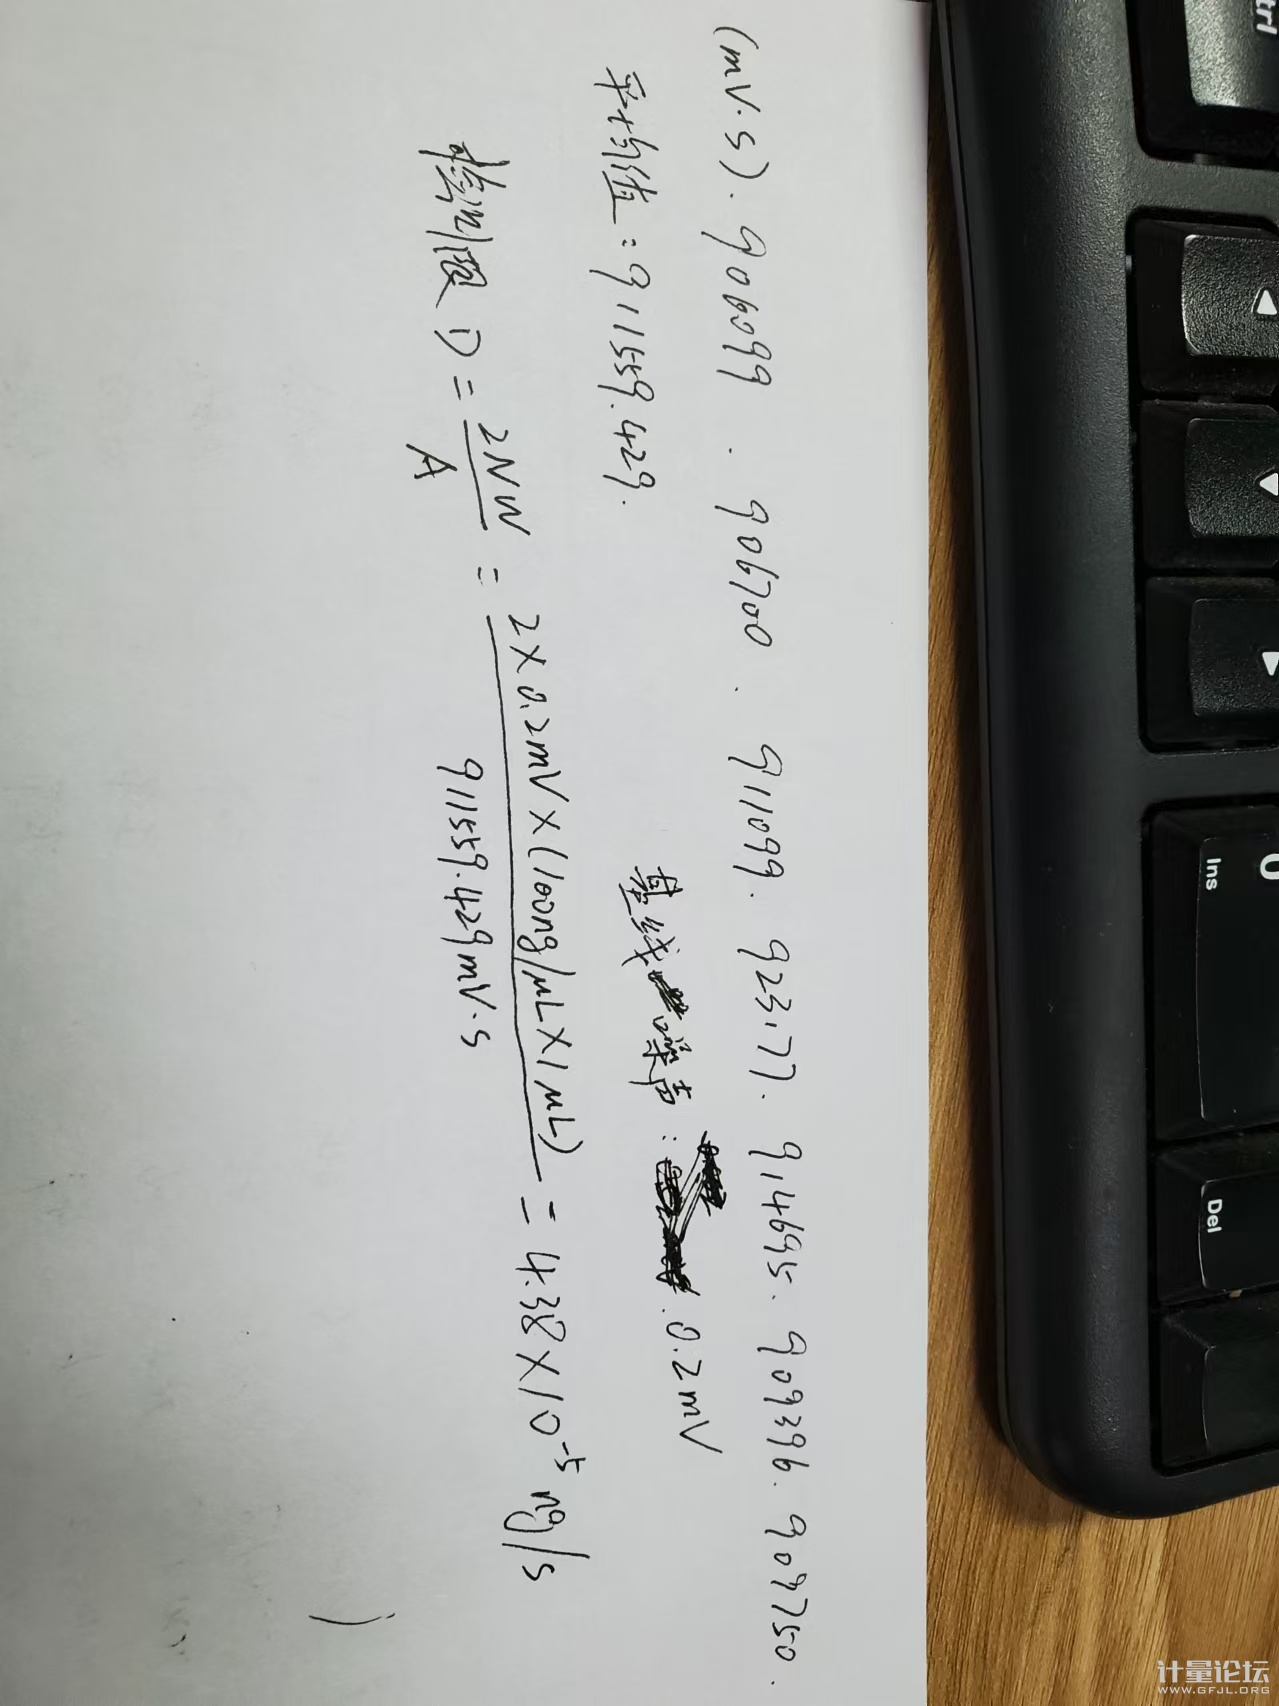 (mV·s). 906099 . 906700 . 911099. 923177. 914695. 909396. 909750.
平均值：911559.429. 基线噪声：0.2mV
检测限 D = 2NW/A = 2×0.2mV×(100ng/μL×1μL)/911559.429mV·s = 4.38×10⁻⁵ng/s
trl
0
Ins
Del
计量论坛
WWW.GFJL.ORG